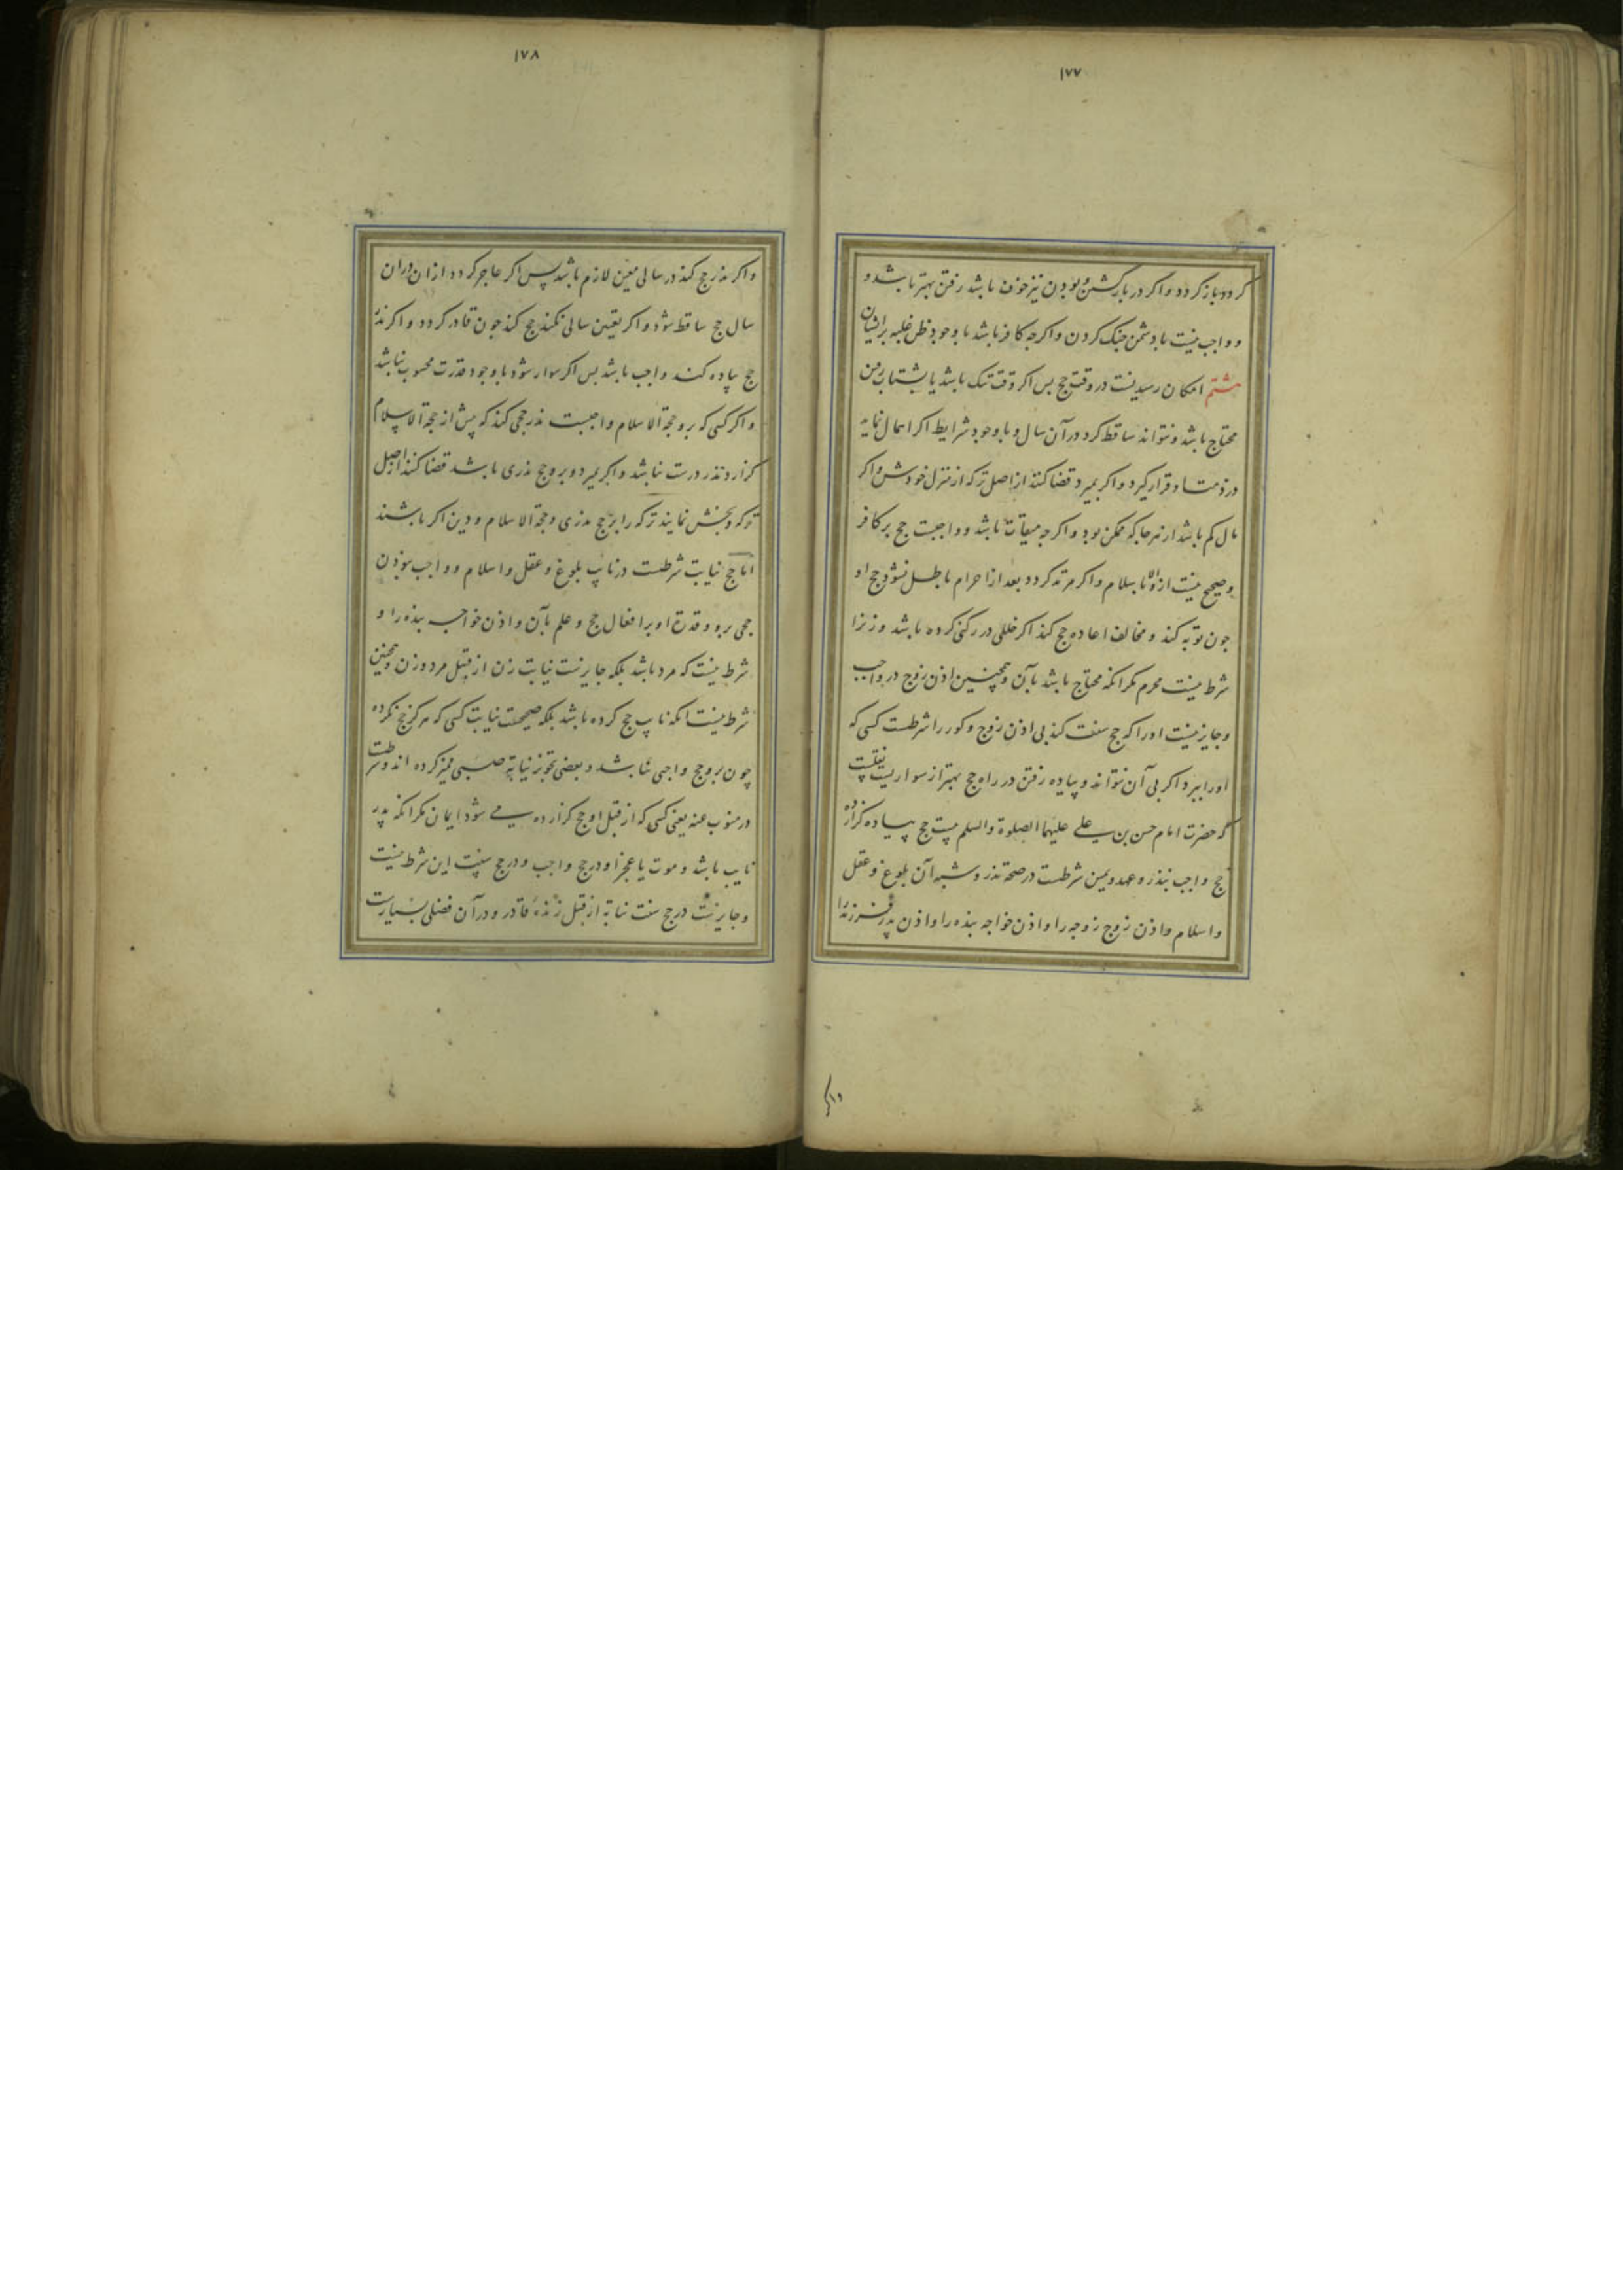 ۱۷۷
کردد باز کردد و اکر در بازکشتن و بودن نیز خوف باشد رفتن بهتر باشد و
و واجب نیست با دشمن جنک کردن و اکرجه کافر باشد با وجود ظن غلبه برایشان
هشتم امکان رسیدنست در وقت حج بس اکر وقت تنک باشد یا بشتاب رفتن
محتاج باشد و نتواند ساقط کردد در آن سال و با وجود شرایط اکر اهمال نماید
در ذمت او قرار کیرد و اکر بمیرد قضا کنند از اصل ترکه از منزل خودش و اکر
مال کم باشد از هرجا که ممکن بود و اکرجه میقات باشد و واجبست حج بر کافر
و صحیح نیست ازو الا باسلام و اکر مرتد کردد بعد از احرام باطل نشود حج او
جون توبه کند و مخالف اعاده حج کند اکر خللی در رکنی کرده باشد و زنرا
شرط نیست محرم مکر انکه محتاج باشد بآن و همچنین اذن زوج در واجب
و جایز نیست اورا که حج سنت کند بی اذن زوج و کور را شرطست کسی که
اورا ببرد اکر بی آن نتواند و پیاده رفتن در راه حج بهتر از سواریست نقلست
که حضرت امام حسن بن علی علیهما الصلوة والسلم بیست حج پیاده کزارده
حج واجب بنذر و عهد و یمین شرطست در صحة نذر و شبه آن بلوغ و عقل
و اسلام و اذن زوج زوجه را و اذن خواجه بنده را و اذن پدر فرزند را
واکر
۱۷۸
و اکر نذر حج کند در سالی معین لازم باشد پس اکر عاجز کردد از ان دران
سال حج ساقط شود و اکر تعیین سالی نکند حج کند جون قادر کردد و اکر نذر
حج پیاده کند واجب باشد بس اکر سوار شود با وجود قدرت محسوب نباشد
و اکر کسی که برو حجة الاسلام واجبست نذر حجی کند که پیش از حجة الاسلام
کزارد نذر درست نباشد و اکر بمیرد و برو حج نذری باشد قضا کنند از اصل
ترکه و بخش نمایند ترکه را بر حج نذری و حجة الاسلام و دین اکر باشند
اما حج نیابت شرطست در نایب بلوغ و عقل و اسلام و واجب نبودن
حجی برو و قدرة او بر افعال حج و علم بآن و اذن خواجه بنده را و
شرط نیست که مرد باشد بلکه جایزست نیابت زن از قبل مرد و زن و همچنین
شرط نیست انکه نایب حج کرده باشد بلکه صحیحست نیابت کسی که هرکز حج نکرده
چون برو حج واجبی نباشد و بعضی تجویز نیابة صبی ممیز کرده اند و شرطست
در منوب عنه یعنی کسی که از قبل او حج کزارده می شود ایمان مکر انکه پدر
نایب باشد و موت یا عجز او در حج واجب و در حج سنت این شرط نیست
و جایزست در حج سنت نیابة از قبل زنده قادر و در آن فضلی بسیارست